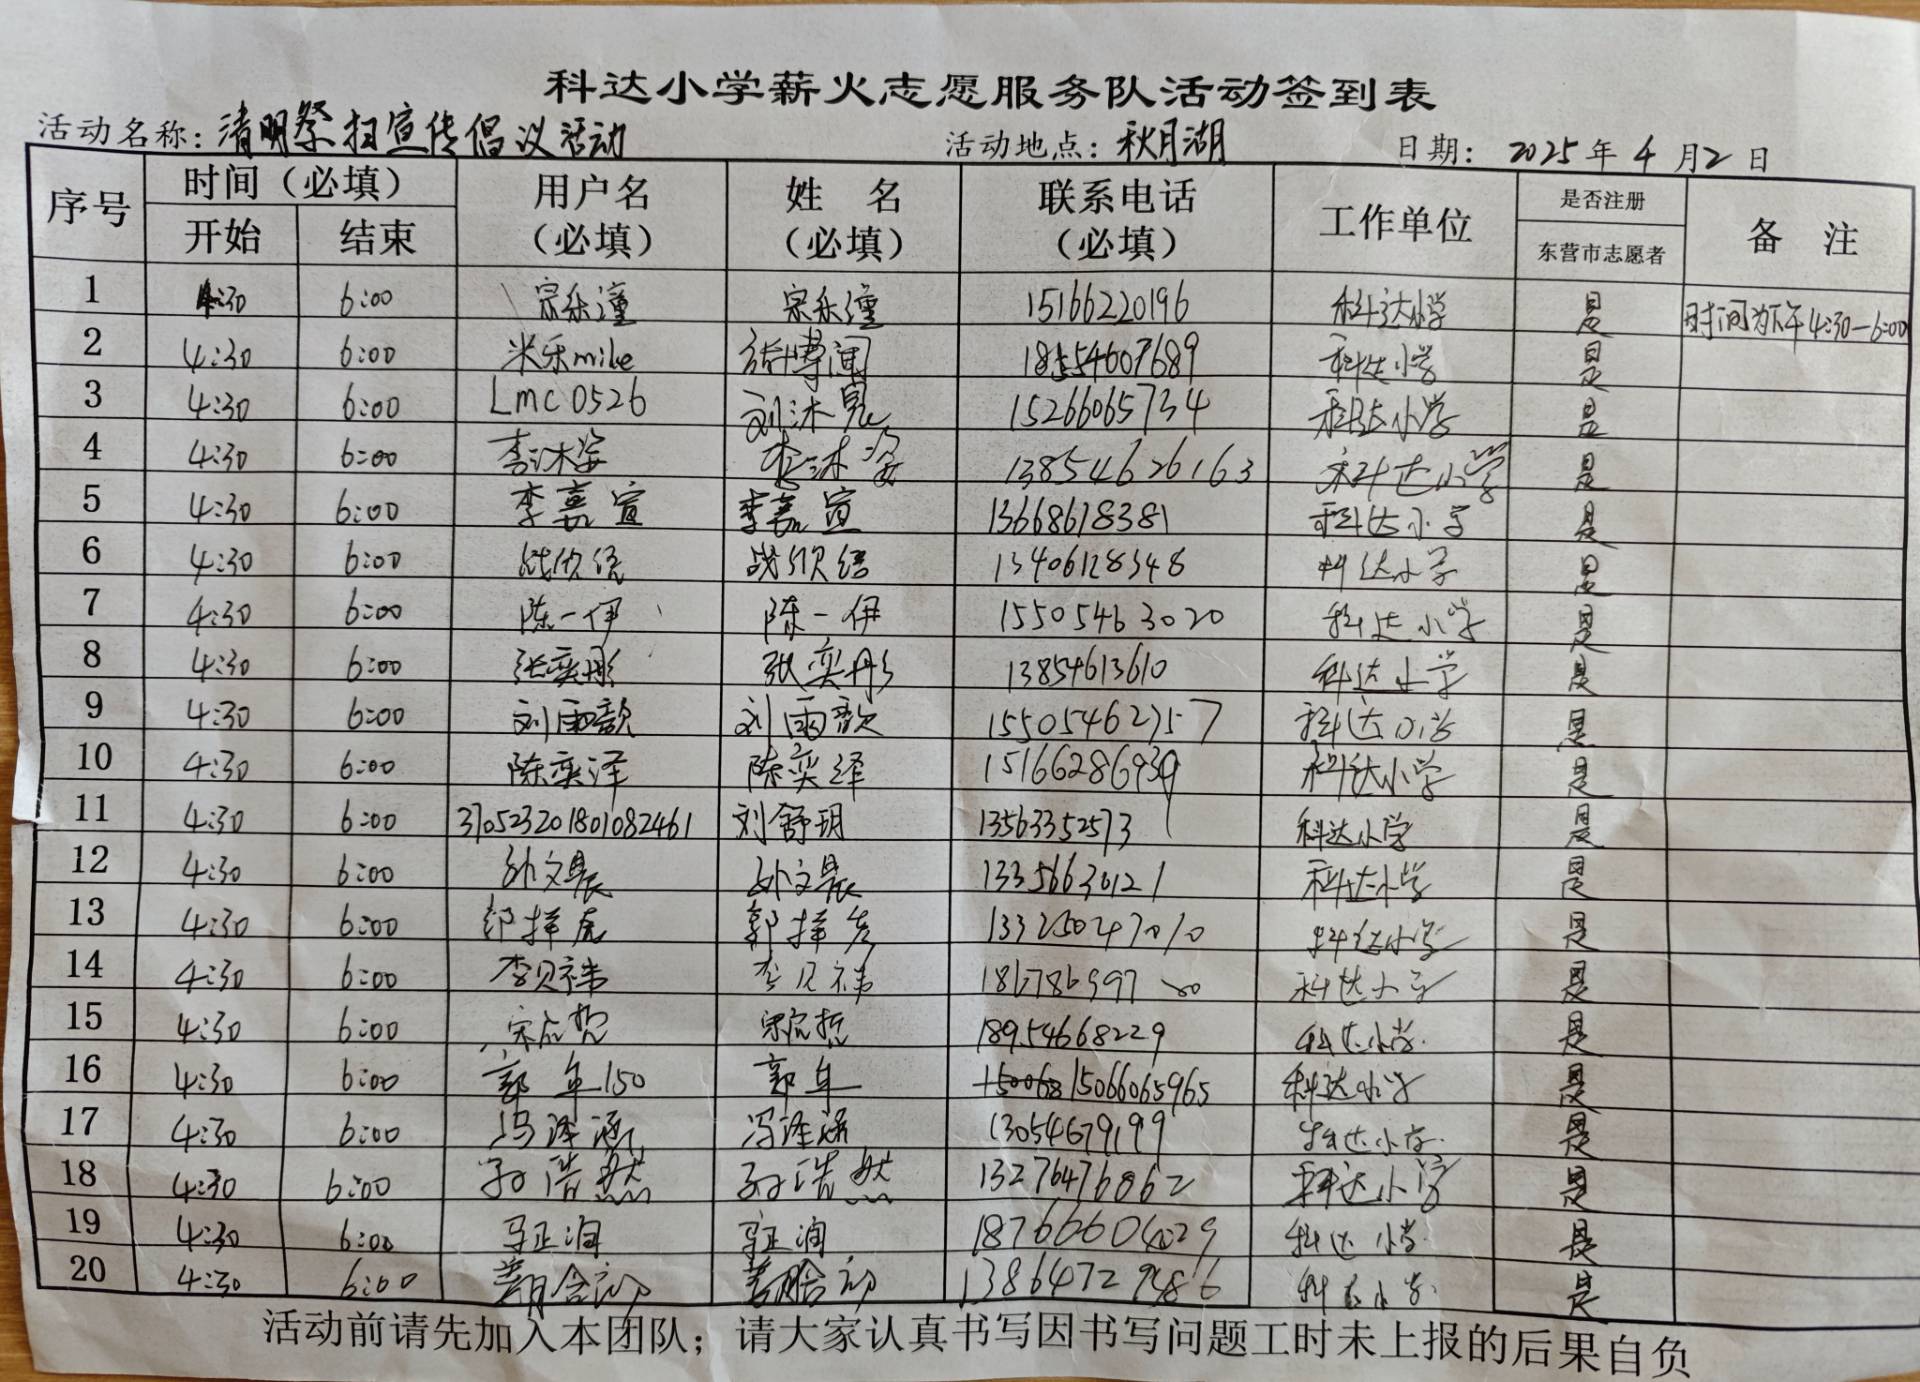 科达小学薪火志愿服务队活动签到表
活动名称：清明祭扫宣传倡议活动 活动地点：秋月湖 日期：2025年4月2日
序号 时间（必填） 用户名（必填） 姓 名（必填） 联系电话（必填） 工作单位 是否注册 备 注
开始 结束 东营市志愿者
1 4:30 6:00 宗乐潼 宗乐潼 15166220196 科达小学 是 时间为下午4:30-6:00
2 4:30 6:00 米乐mike 张博闻 18554607689 科达小学 是
3 4:30 6:00 Lmc0526 刘沐宸 15266065734 科达小学 是
4 4:30 6:00 李沐姿 李沐姿 13854626163 科达小学 是
5 4:30 6:00 李嘉宣 李嘉宣 13668618381 科达小学 是
6 4:30 6:00 13406128348 科达小学 是
7 4:30 6:00 陈一伊 陈一伊 15505463020 科达小学 是
8 4:30 6:00 张奕彤 张奕彤 13854613610 科达小学 是
9 4:30 6:00 刘雨歆 刘雨歆 15505462757 科达小学 是
10 4:30 6:00 陈奕泽 陈奕泽 科达小学 是
11 4:30 6:00 370523201801082461 刘舒玥 13563352573 科达小学 是
12 4:30 6:00 13356630121 科达小学 是
13 4:30 6:00 13325047010 科达小学 是
14 4:30 6:00 李贝祎 李贝祎 科达小学 是
15 4:30 6:00 宋应哲 宋应哲 18954668229 科达小学 是
16 4:30 6:00 郭年150 郭年 15066065965 科达小学 是
17 4:30 6:00 冯泽涵 冯泽涵 13054679199 科达小学 是
18 4:30 6:00 孙浩然 孙浩然 13276476862 科达小学 是
19 4:30 6:00 马正润 马正润 18766604029 科达小学 是
20 4:30 6:00 科达小学 是
活动前请先加入本团队；请大家认真书写因书写问题工时未上报的后果自负